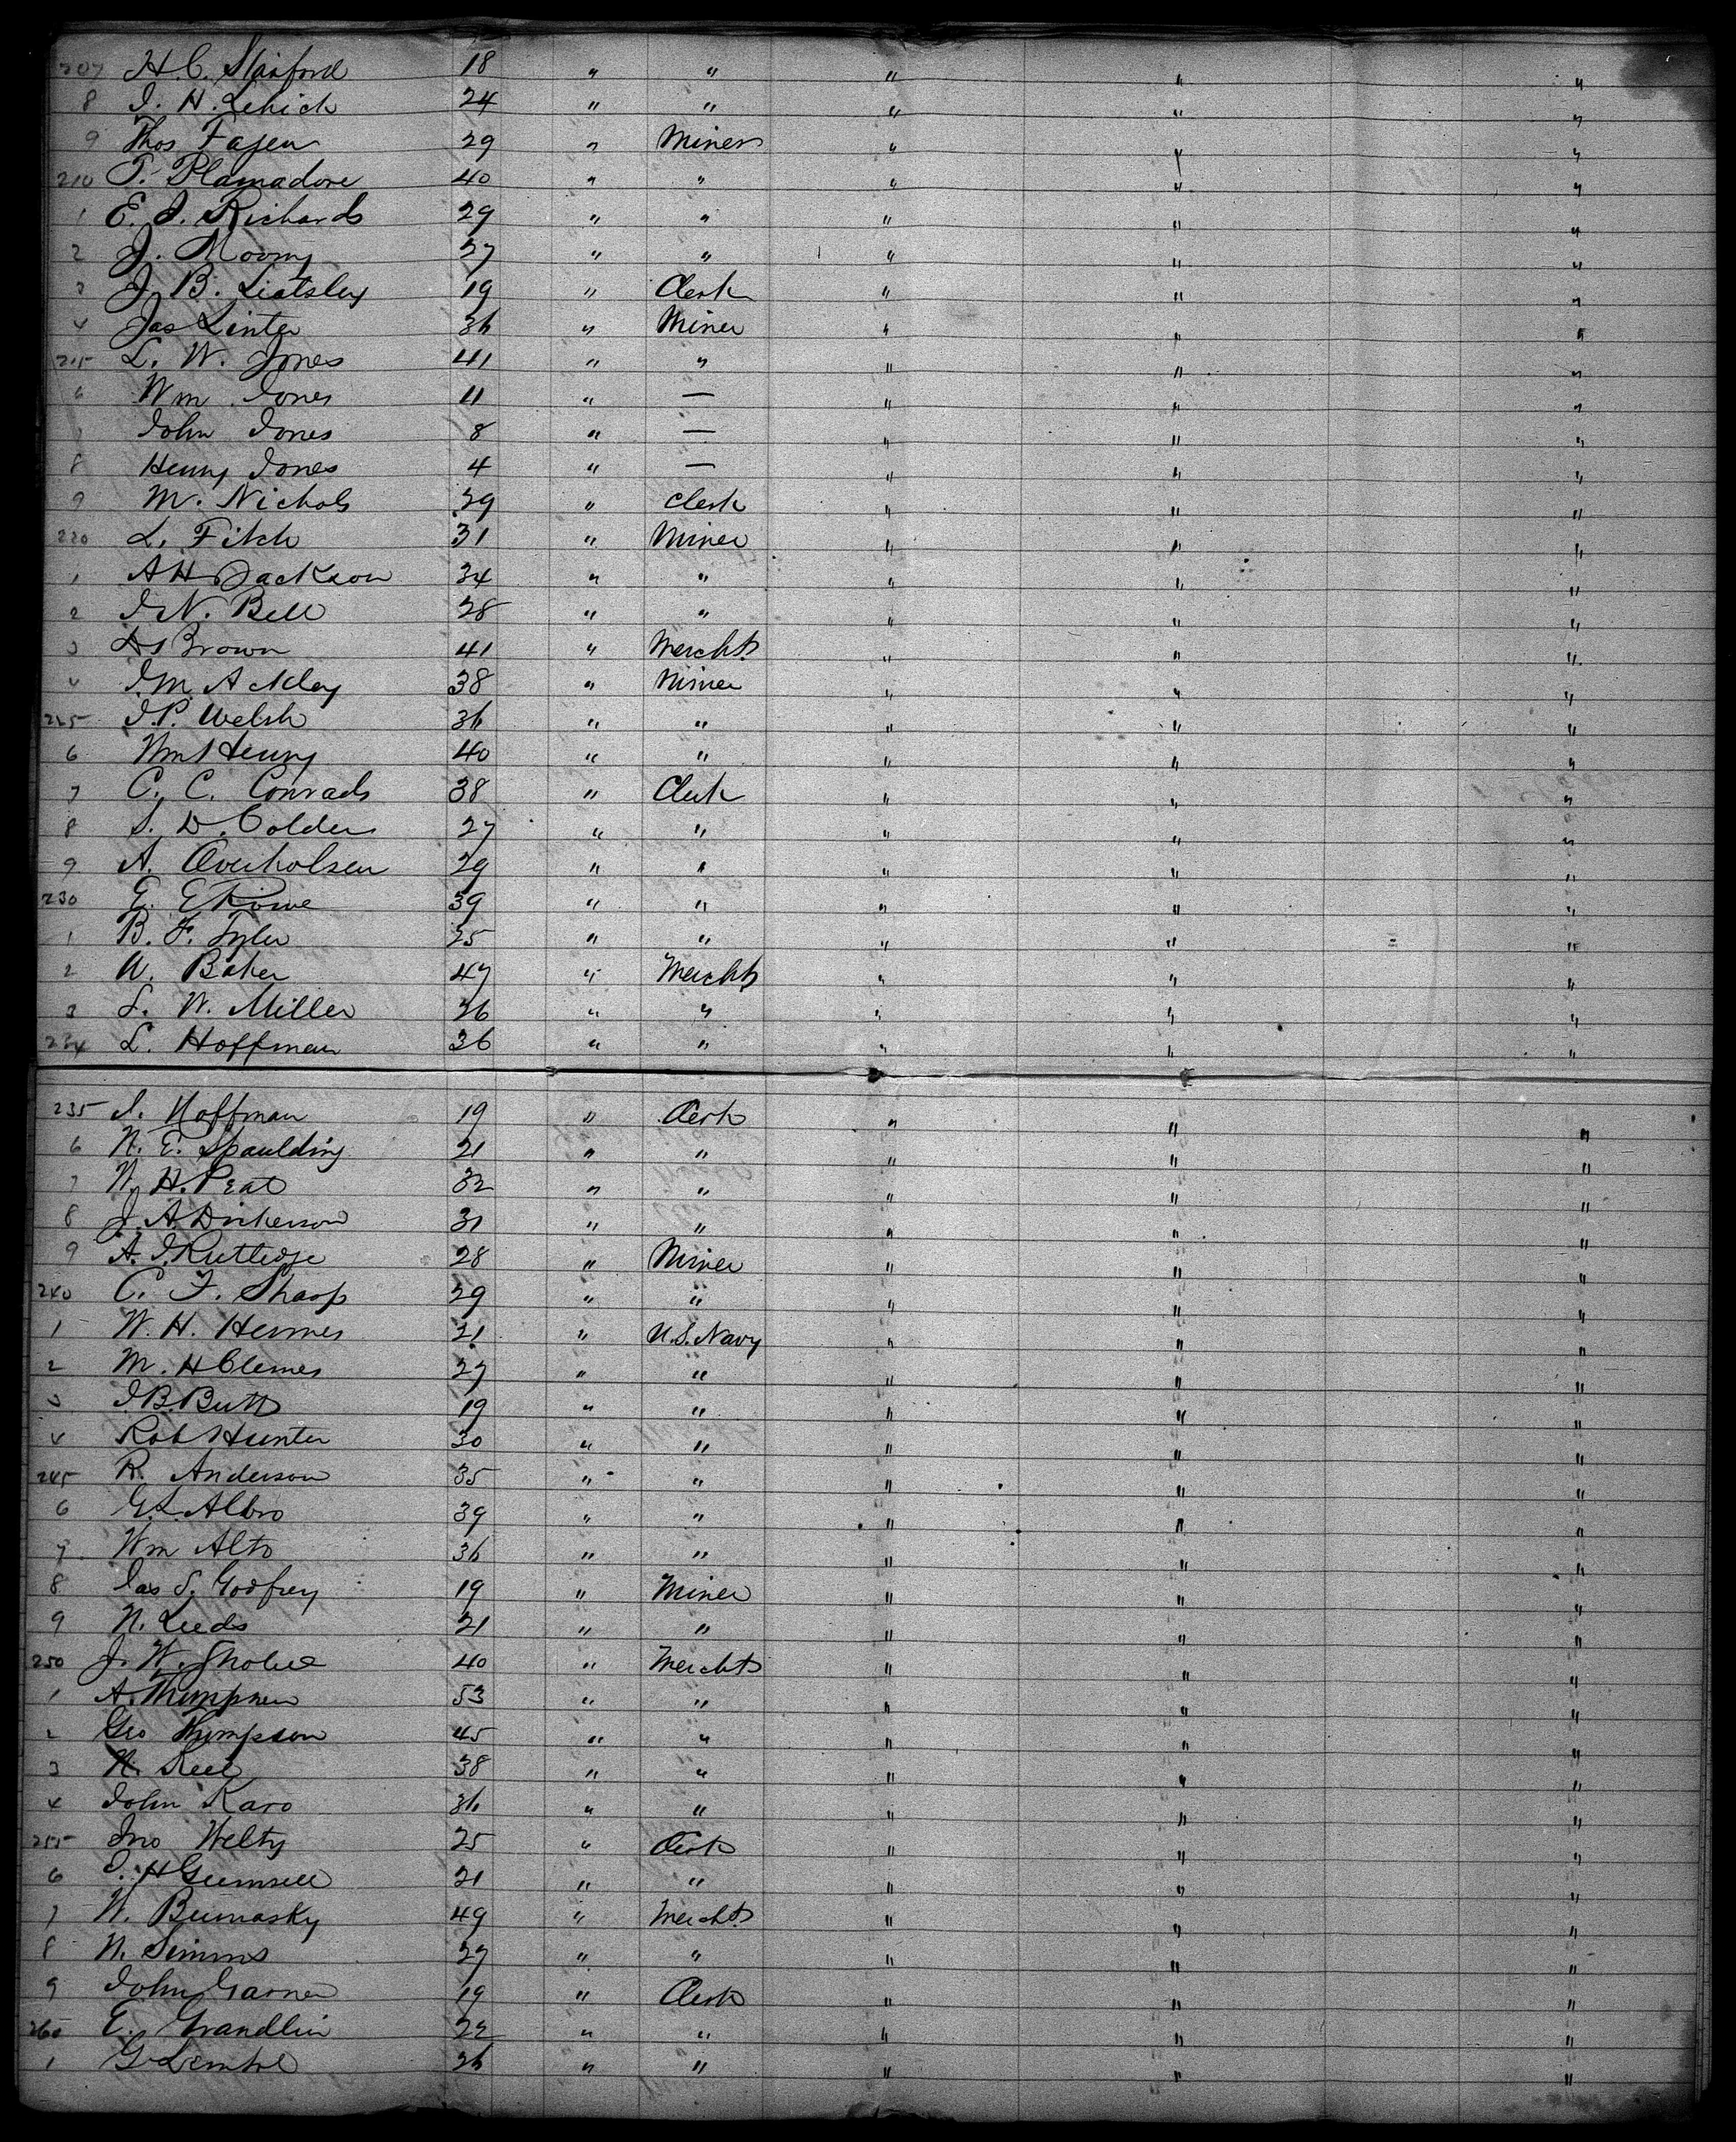 207 H. C. Stanford 18 " " " " "
8 J. H. 24 " " " " "
9 Thos Fagen 29 " Miner " " "
210 T. Plamadore 40 " " " " "
1 E. J. Richards 29 " " " " "
2 J. Moony 27 " " " " "
3 J. B. 19 " Clerk " " "
4 Jas Linter 36 " Miner " " "
215 L. W. Jones 41 " " " " "
6 Wm Jones 11 " — " " "
7 John Jones 8 " — " " "
8 Henry Jones 4 " — " " "
9 M. Nichols 39 " Clerk " " "
220 L. Fitch 31 " Miner " " "
1 A H Jackson 34 " " " " "
2 J. N. Bell 28 " " " " "
3 Brown 41 " Mercht " " "
4 J. M. Ackley 38 " Miner " " "
225 J. P. Welsh 36 " " " " "
6 Wm Henry 40 " " " " "
7 C. C. Conrads 38 " Clerk " " "
8 S. D. Colder 27 " " " " "
9 A. Overholser 29 " " " " "
230 E. E Rowe 39 " " " " "
1 B. F. Tyler 25 " " " " "
2 A. Baker 47 " Mercht " " "
3 S. W. Miller 26 " " " " "
234 L. Hoffman 36 " " " " "
235 J. Hoffman 19 " Clerk " " "
6 N. E. Spaulding 21 " " " " "
7 W. H. Peat 32 " " " " "
8 J. A. Dickerson 31 " " " " "
9 A. J. Rutledge 28 " Miner " " "
240 C. F. Sharp 29 " " " " "
1 W. H. Hermes 21 " U.S. Navy " " "
2 M. H Clemes 27 " " " " "
3 J. B. Butt 19 " " " " "
4 Robt Hunter 30 " " " " "
245 R. Anderson 35 " " " " "
6 G. L. Albro 39 " " " " "
7 Wm Alto 36 " " " " "
8 Jas S. Godfrey 19 " Miner " " "
9 N. Leeds 21 " " " " "
250 J. W. 40 " Mercht " " "
1 A. 53 " " " " "
2 Geo Thompson 45 " " " " "
3 N. Keel 38 " " " " "
4 John Karo 36 " " " " "
255 Jno Welty 25 " Clerk " " "
6 H 21 " " " " "
7 W. 49 " Mercht " " "
8 N. Simms 27 " " " " "
9 John Garner 19 " Clerk " " "
260 E. Grandlin 22 " " " " "
1 G. 26 " " " " "